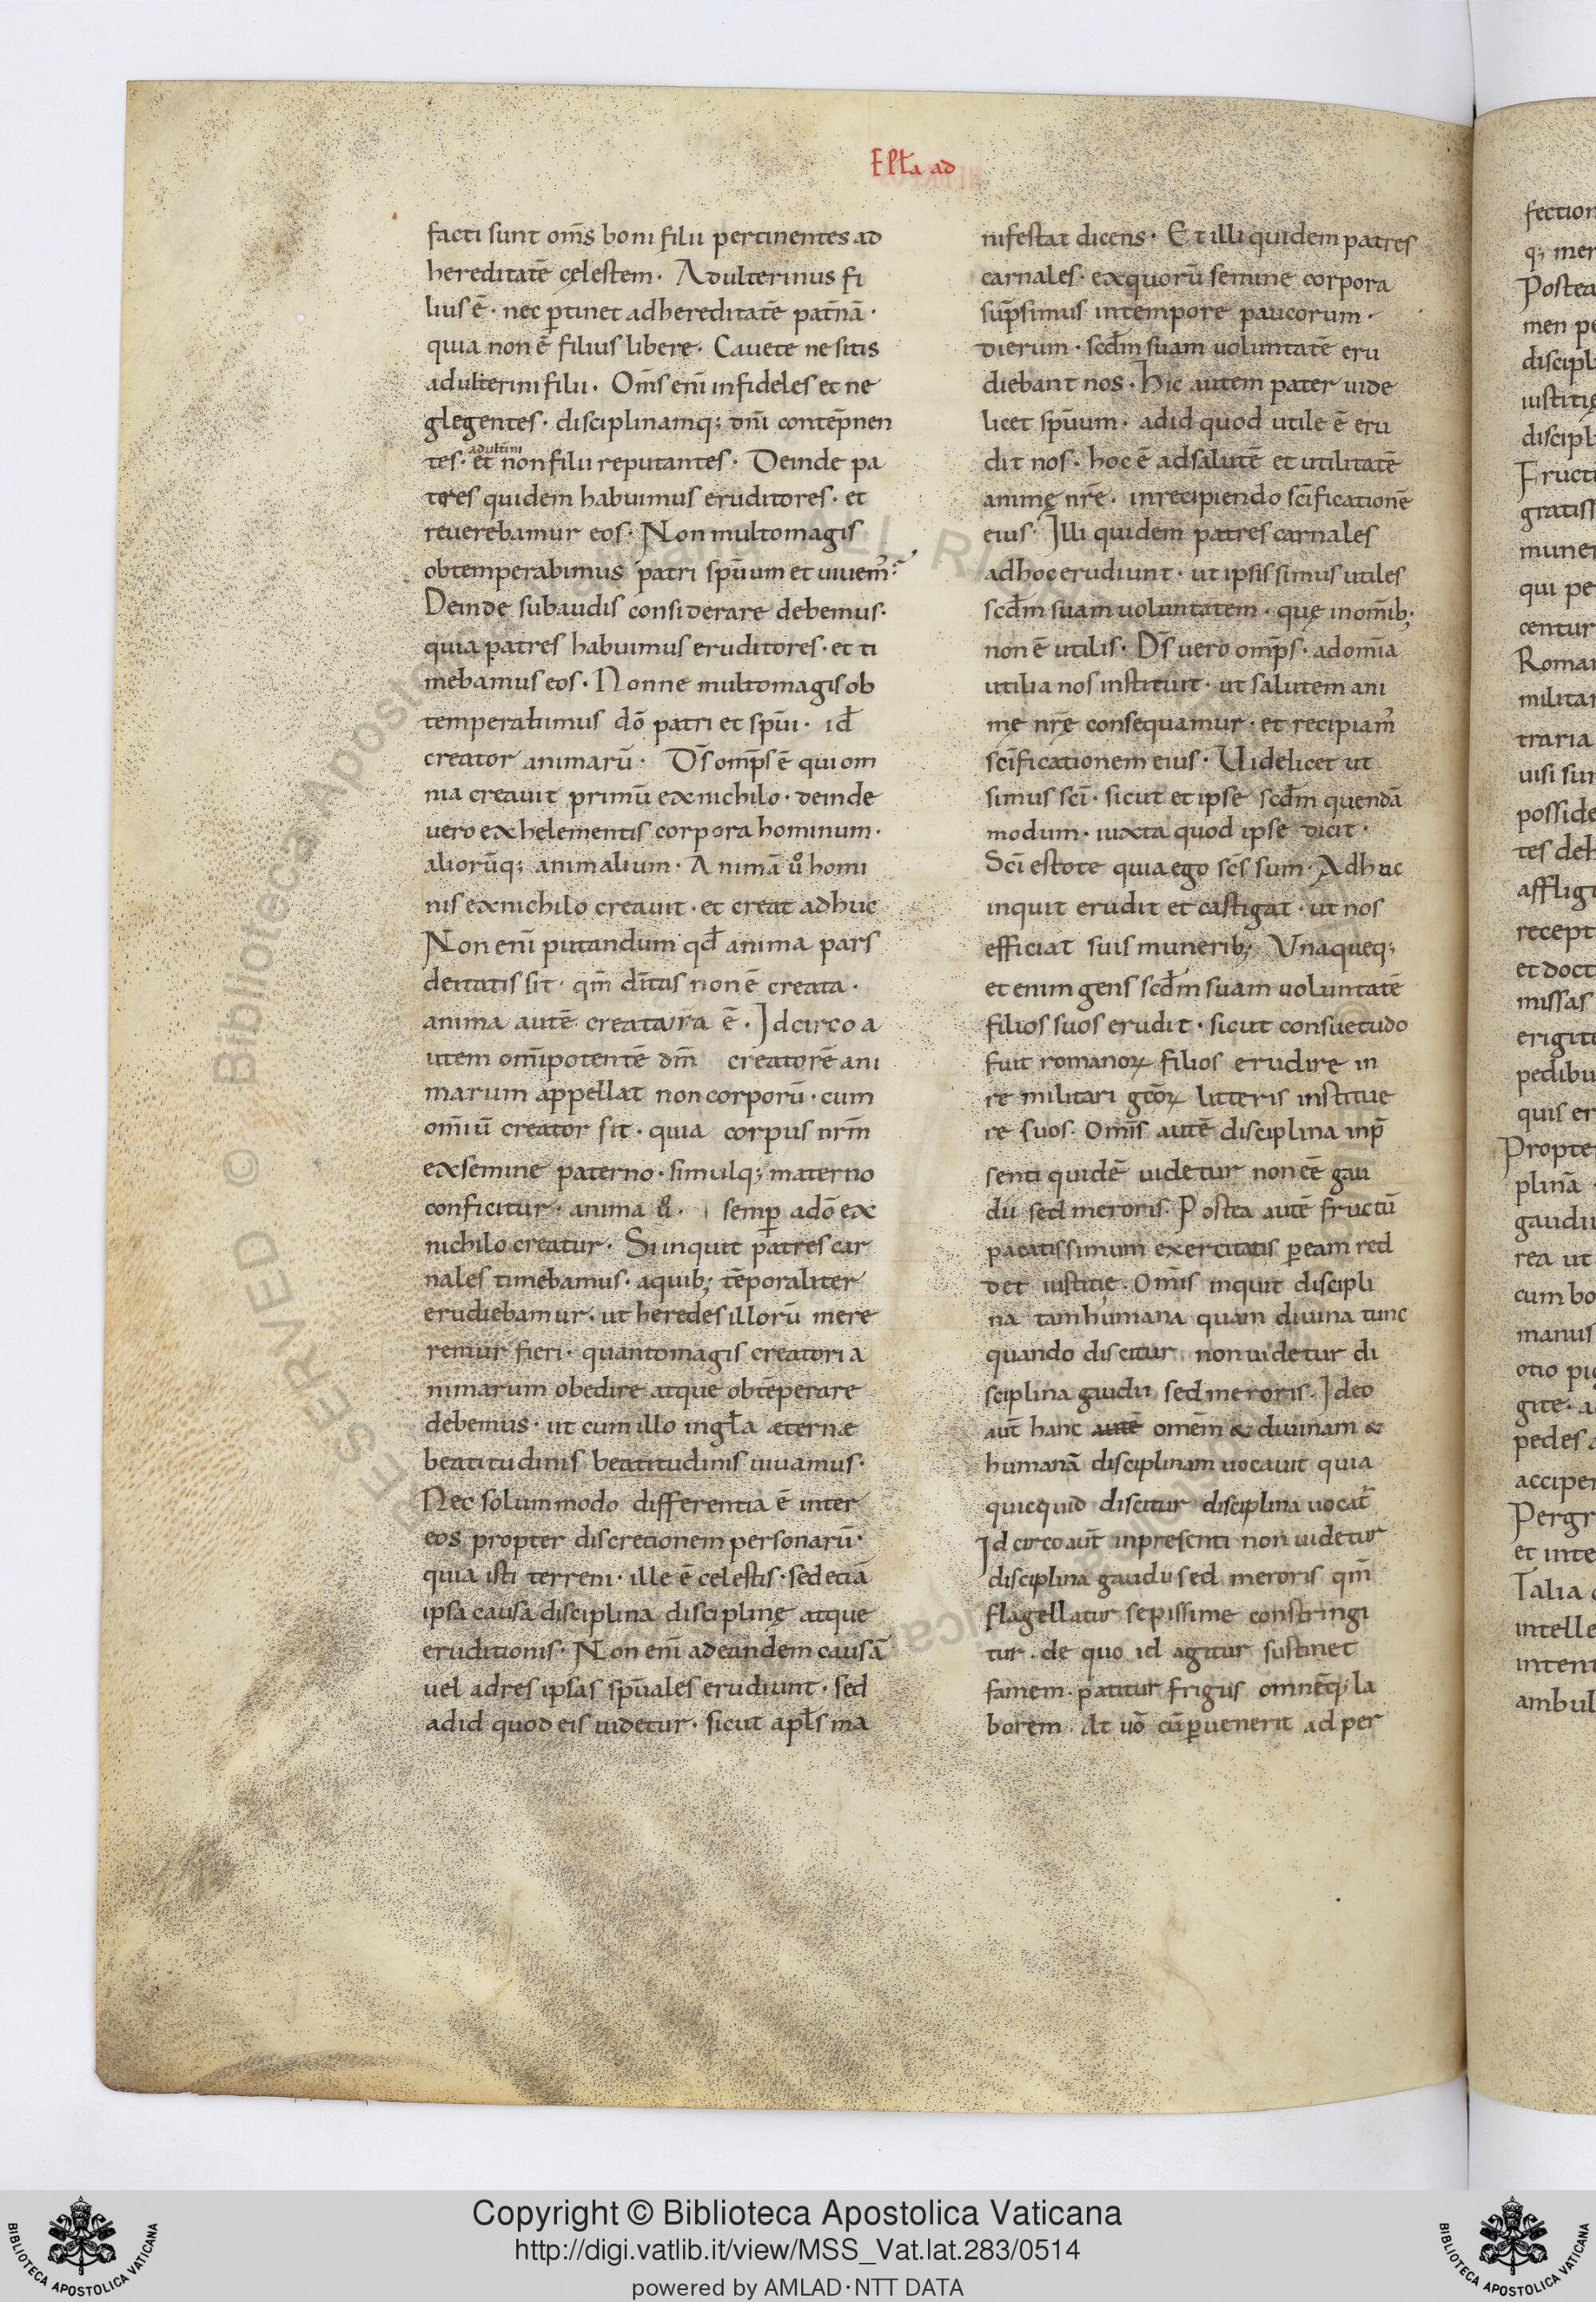 EPLa ad
facti sunt om̄s boni filii pertinentes ad
hereditatē cęlestem · Adulterinus fi
lius ē · nec p̱tinet ad hereditatē pat̄nā ·
quia non ē filius libere · Cauete ne sitis
adulterini filii · Om̄s eni̅ infideles et ne
glegentes · disciplinamq; dn̄i contēpnen
adult̄ini
tes · et non filii reputantes · Deinde pa
tres quidem habuimus eruditores · et
reuerebamur eos · Non multo magis
obtemperabimus patri sp̄uum et uiuem᾽
Deinde subaudis considerare debemus ·
quia patres habuimus eruditores · et ti
mebamus eos · Nonne multo magis ob
temperabimus dō patri et sp̄ui · id̄
creator animarū · D̄s omp̄s ē qui om
nia creauit primū ex nichilo · deinde
uero ex helementis corpora hominum ·
aliorūq; animalium · Animā ů homi
nis ex nichilo creauit · et creat adhuc
Non eni̅ putandum qđ anima pars
deitatis sit · qm̄ diītas non ē creata ·
anima autē creatura ē · Idcirco a
utem om̄ipotentē dm̄ creatorē ani
marum appellat non corporū · cum
om̄iū creator sit · quia corpus nr̄m
ex semine paterno · simulq; materno
conficitur · anima ů · semp̱ a dō ex
nichilo creatur · Si inquit patres car
nales timebamus · a quib; tēporaliter
erudiebamur · ut heredes illorū mere
remur fieri · quanto magis creatori a
nimarum obedire atque obtēperare
debemus · ut cum illo in gl̄a æternæ
beatitudinis beatitudinis uiuamus ·
Nec solummodo differentia ē inter
eos propter discretionem personarū ·
quia isti terreni · ille ē celestis · sed etiā
ipsa causa disciplina disciplinę atque
eruditionis · Non eni̅ ad eandem causā
uel ad res ipsas sp̄uales erudiunt · sed
ad id quod eis uidetur · sicut apl̄s ma
nifestat dicens · Et illi quidem patres
carnales · ex quorū semine corpora
sūpsimus in tempore paucorum ·
dierum · scđm suam uoluntatē eru
diebant nos · hic autem pater uide
licet sp̄uum · ad id quod utile ē eru
dit nos · hoc ē ad salutē et utilitatē
animę nr̄e · in recipiendo sc̄ificationē
eius · Illi quidem patres carnales
ad hoc erudiunt · ut ipsis simus utiles
scđm suam uoluntatem · quę in om̄ib;
non ē utilis · D̄s uero omp̄s · ad om̄ia
utilia nos instituit · ut salutem ani
mę nr̄ę consequamur · et recipiam᾽
sc̄ificationem eius · Uidelicet ut
simus sc̄i · sicut et ipse scđm quendā
modum · iuxta quod ipse dicit ·
Sc̄i estote quia ego sc̄s sum · Adhuc
inquit erudit et castigat · ut nos
efficiat suis munerib; Vnaqueq;
et enim gens scđm suam uoluntatē
filios suos erudit · sicut consuetudo
fuit romanoꝝ filios erudire in
re militari gc̄oꝝ litteris institue
re suos · Om̄is autē disciplina in p̄
senti quidē uidetur non eē gau
dii sed meroris · Postea autē fructū
pacatissimum exercitatis p̱ eam red
det iustitię · Om̄is inquit discipli
na tam humana quam diuina tunc
quando discitur non uidetur di
sciplina gaudii sed meroris · Ideo
aūt hanc autē omēm & diuinam &
humanā disciplinam uocauit quia
quicquid discitur disciplina uocat᾽
Idcirco aūt in presenti non uidetur
disciplina gaudii sed meroris qm̄
flagellatur sepissime constringi
tur · de quo id agitur sustinet
famem · patitur frigus omnēq; la
borem · At uō cū p̱uenerit ad per
fection
q; mer
Postea
men pe
discipl
iustitię
discipl
Fructu
gratiss
muner
qui pe
centur
Roman
militar
traria
uisi sun
posside
tes deb
afflig
recept
et doct
missas
erigite
pedibu
quis er
Propte
plinā
gaudii
rea ut
cum bo
manus
otio pi
gite · a
pedes a
accipe
Pergr
et inte
Talia
intelle
intent
ambul
Copyright © Biblioteca Apostolica Vaticana
http://digi.vatlib.it/view/MSS_Vat.lat.283/0514
powered by AMLAD·NTT DATA
BIBLIOTECA APOSTOLICA VATICANA
BIBLIOTECA APOSTOLICA VATICANA